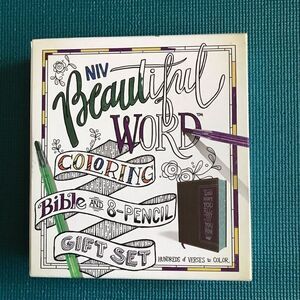 NIV
Beautiful
WORD™
COLORING
Bible AND 8-PENCIL
GIFT SET
HUNDREDS of VERSES to COLOR